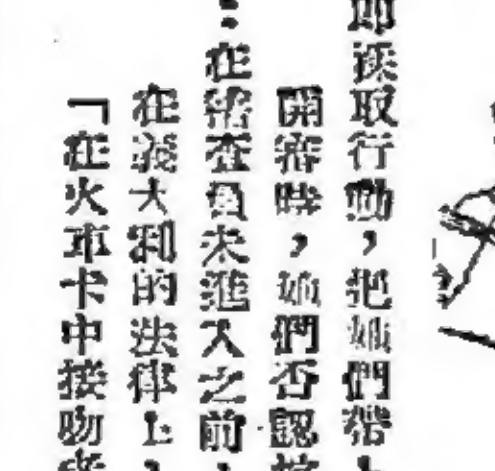 即採取行動，把她們帶
開審時，她們否認
：在稽查員未進入之前，
在義大利的法律上，
「在火車卡中接吻者